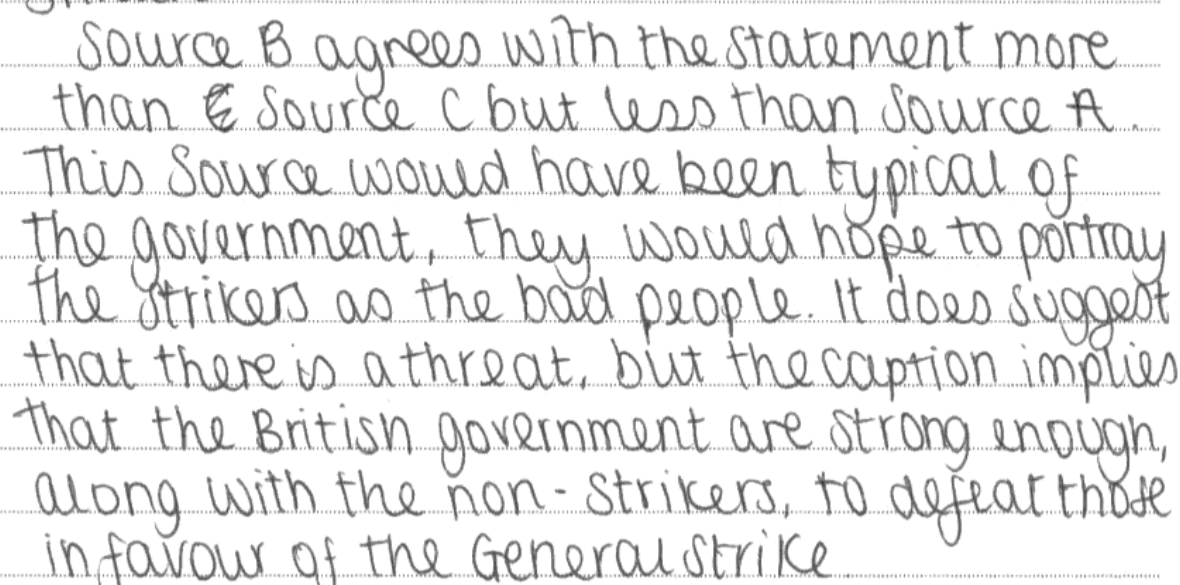 Source B agrees with the statement more
than Source C but less than Source A.
This Source would have been typical of
the government, they would hope to portray
the strikers as the bad people. It does suggest
that there is a threat, but the caption implies
that the British government are strong enough,
along with the non-strikers, to defeat those
in favour of the General Strike